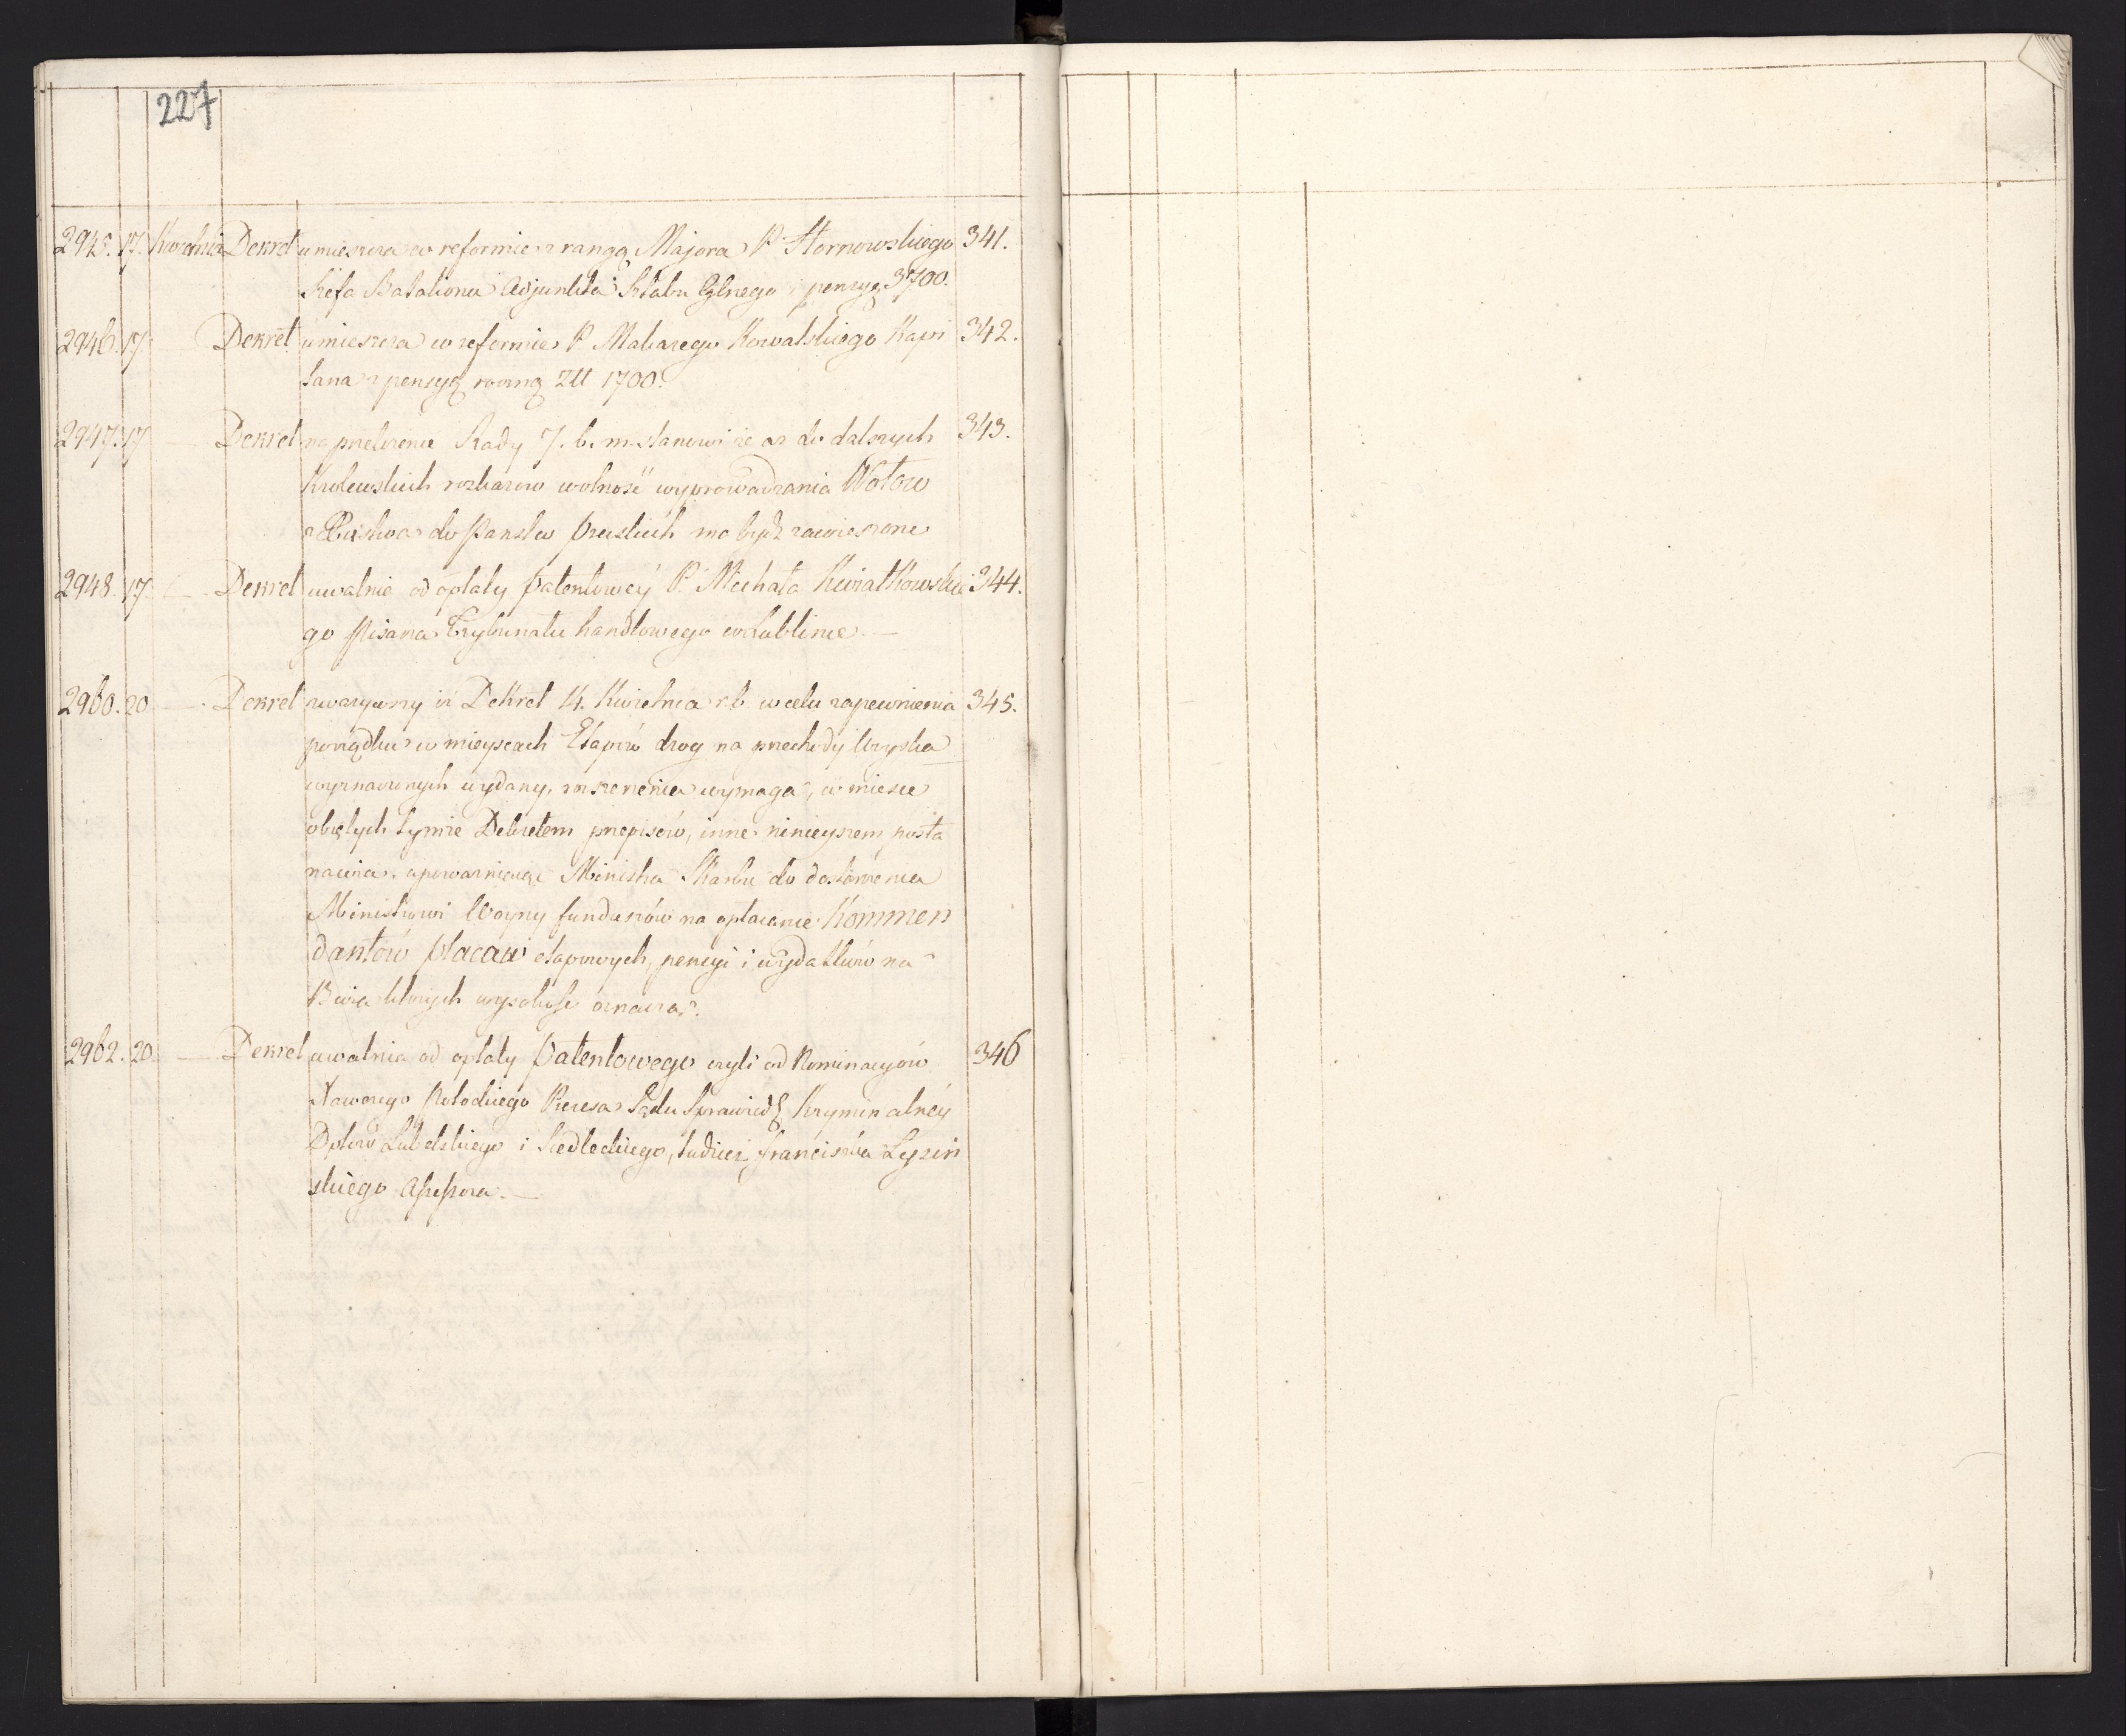 227
2945. 17. Kwietnia Dekret umieszcza w reformie z rangą Majora P. Hornowskiego 341.
Szefa Batalionu Adjunkta Sztabu Głnego i pensyą 3700.
2946. 17. Dekret umieszcza w reformie P. Makarego Kowalskiego Kapi 342.
tana z pensyą roczną Złł 1700.
2947. 17 — Dekret na przełożenie Rady 7. b. m. stanowi że aż do dalszych 343.
Krolewskich rozkazow wolność wyprowadzania Wołow
z Xięstwa do Panstw Pruskich ma bydź zawieszone
2948. 17 — Dekret uwalnia od opłaty Patentowey P. Michała Kwiatkowskie 344.
go Pisarza Trybunału handlowego w Lublinie. —
2960. 20 — Dekret zważywszy iż Dekret 14. Kwietnia r.b. w celu zapewnienia 345.
porządku w mieyscach Etapów drog na przechody Woyska
wyznaczonych wydany, rozszerzenia wymaga, w miesce
obiętych tymże Dekretem przepisów, inne ninieyszem posta
nawia, upoważniaiąc Ministra Skarbu do dostawienia
Ministrowi Woyny funduszów na opłacanie Kommen
dantów placów etapowych, pensyi i wydatków na
Biura których wysokość oznacza.
2962. 20. — Dekret uwalnia od opłaty Patentowego czyli od Nominacyów 346
Xawerego Potockiego Prezesa Sądu Sprawiedl Kryminalnéy
Dpttów Lubelskiego i Siedleckiego, tudzież Franciszka Lyszin
skiego Assessora. —